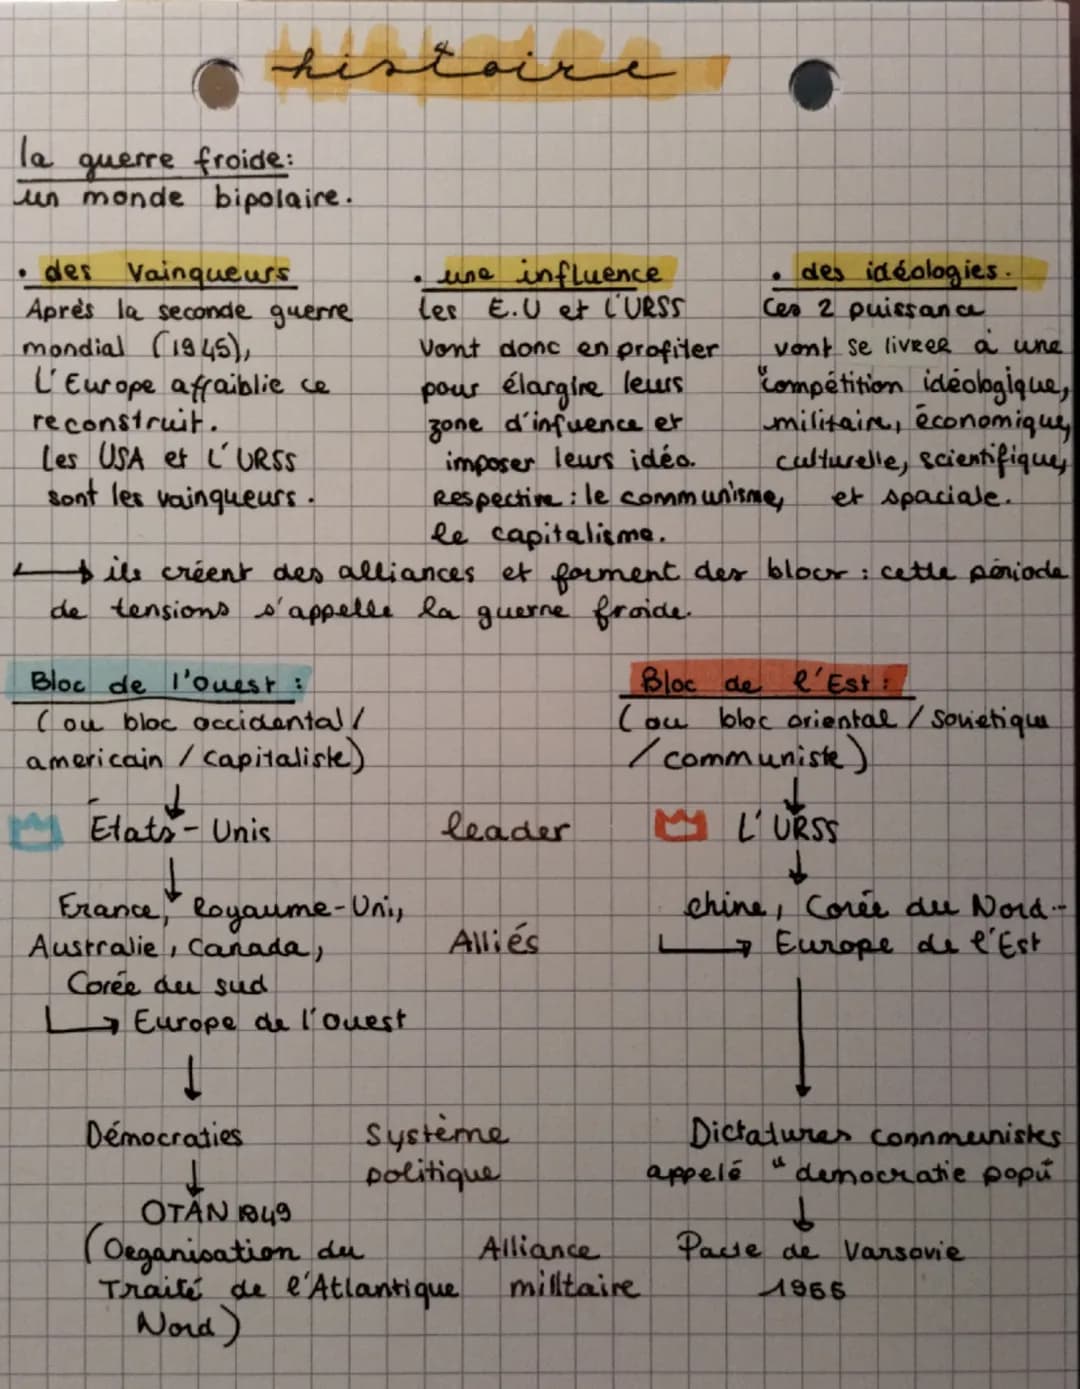 histoire
la guerre froide:
un monde bipolaire.
• des Vainqueurs
Après la seconde guerre
mondial (1945),
L'Europe affraiblie ce
reconstruit.
Les USA et L'URSS
sont les vainqueurs.
• une influence
Les E.U et L'URSS
Vont donc en profiter
pour élargire leurs
zone d'infuence et
imposer leurs idéo.
Respective : le communisme,
le capitalisme.
• des idéologies.
Ces 2 puissance
vont se livrer à une
"compétition idéologique,
militaire, économique,
culturelle, scientifique,
et spaciale.
ils créent des alliances et forment des blocs : cette période
de tensions s'appelle la guerre froide.
Bloc de l'ouest :
(ou bloc occidental /
americain / capitaliste)
États-Unis
France, Royaume-Uni,
Australie, Canada,
Corée du sud
Europe de l'ouest
Démocraties
OTAN 1949
(Organisation du
Traité de l'Atlantique
Nord)
leader
Alliés
Système
politique
Alliance
milltaire
Bloc de l'Est :
(ou bloc oriental / Sovietique
/ communiste)
L'URSS
chine, Corée du Nord..
Europe de l'Est
Dictatures connmunistes
appelé "democratie popu
Pacte de Varsovie